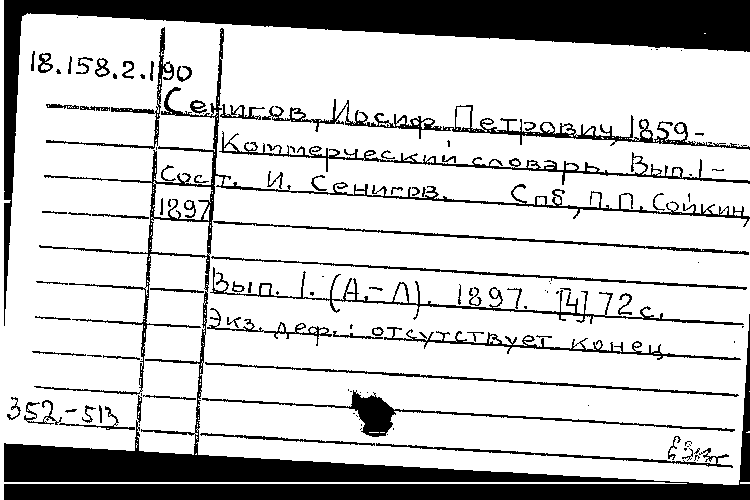 18.158.2.190
Сенигов, Иосиф Петрович, 1859-
Коммерческий словарь. Вып. 1-
Сост. И. Сенигов. Спб, П.П. Сойкин,
1897
Вып. 1. (А.-Л). 1897. [4], 72 с.
Экз. деф.: отсутствует конец
352.-513